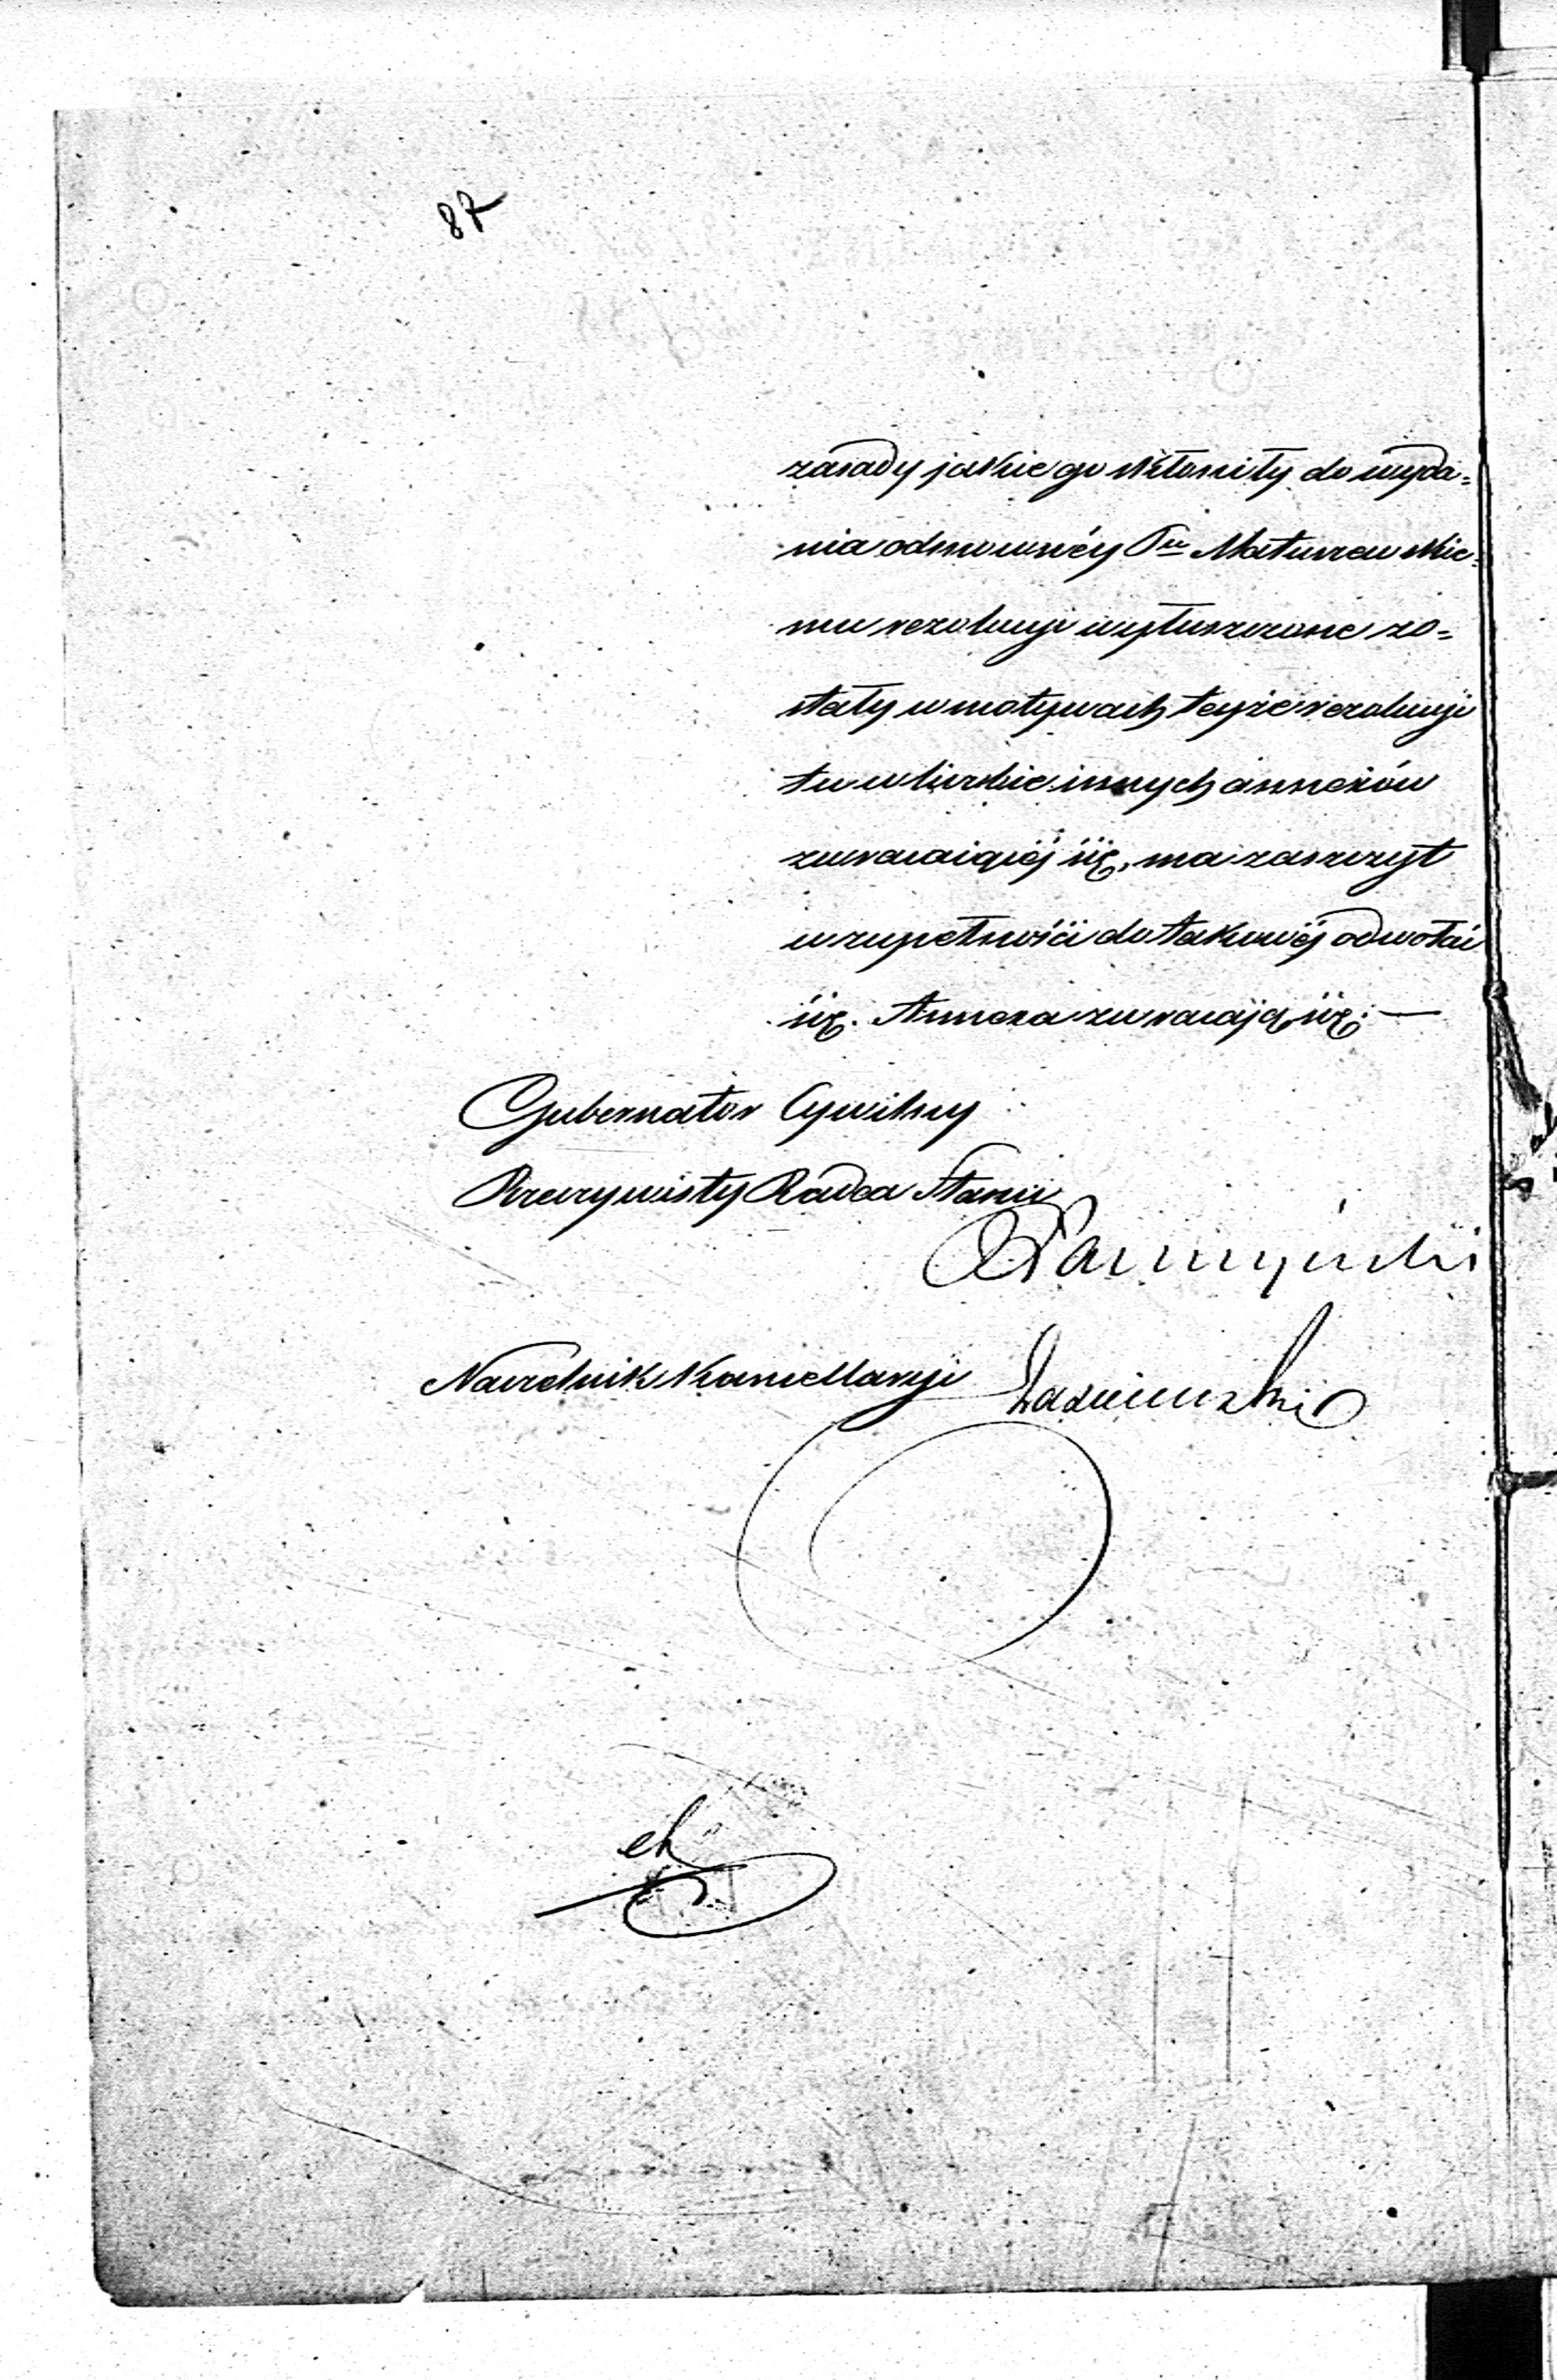 87
zasady jakie go skłoniły do wyda=
nia odmownéy Pu Matuszewskie=
mu rezolucyi wyłuszczone zo=
stały w motywach teyże rezolucyi
tu w liczbie innych annexów
zwracaiącéj się, ma zaszczyt
w zupełności do takowéj odwołać
się. Annexa zwracają się. —
Gubernator Cywilny
Rzeczywisty Radca Stanu
Naczelnik Kancellaryi